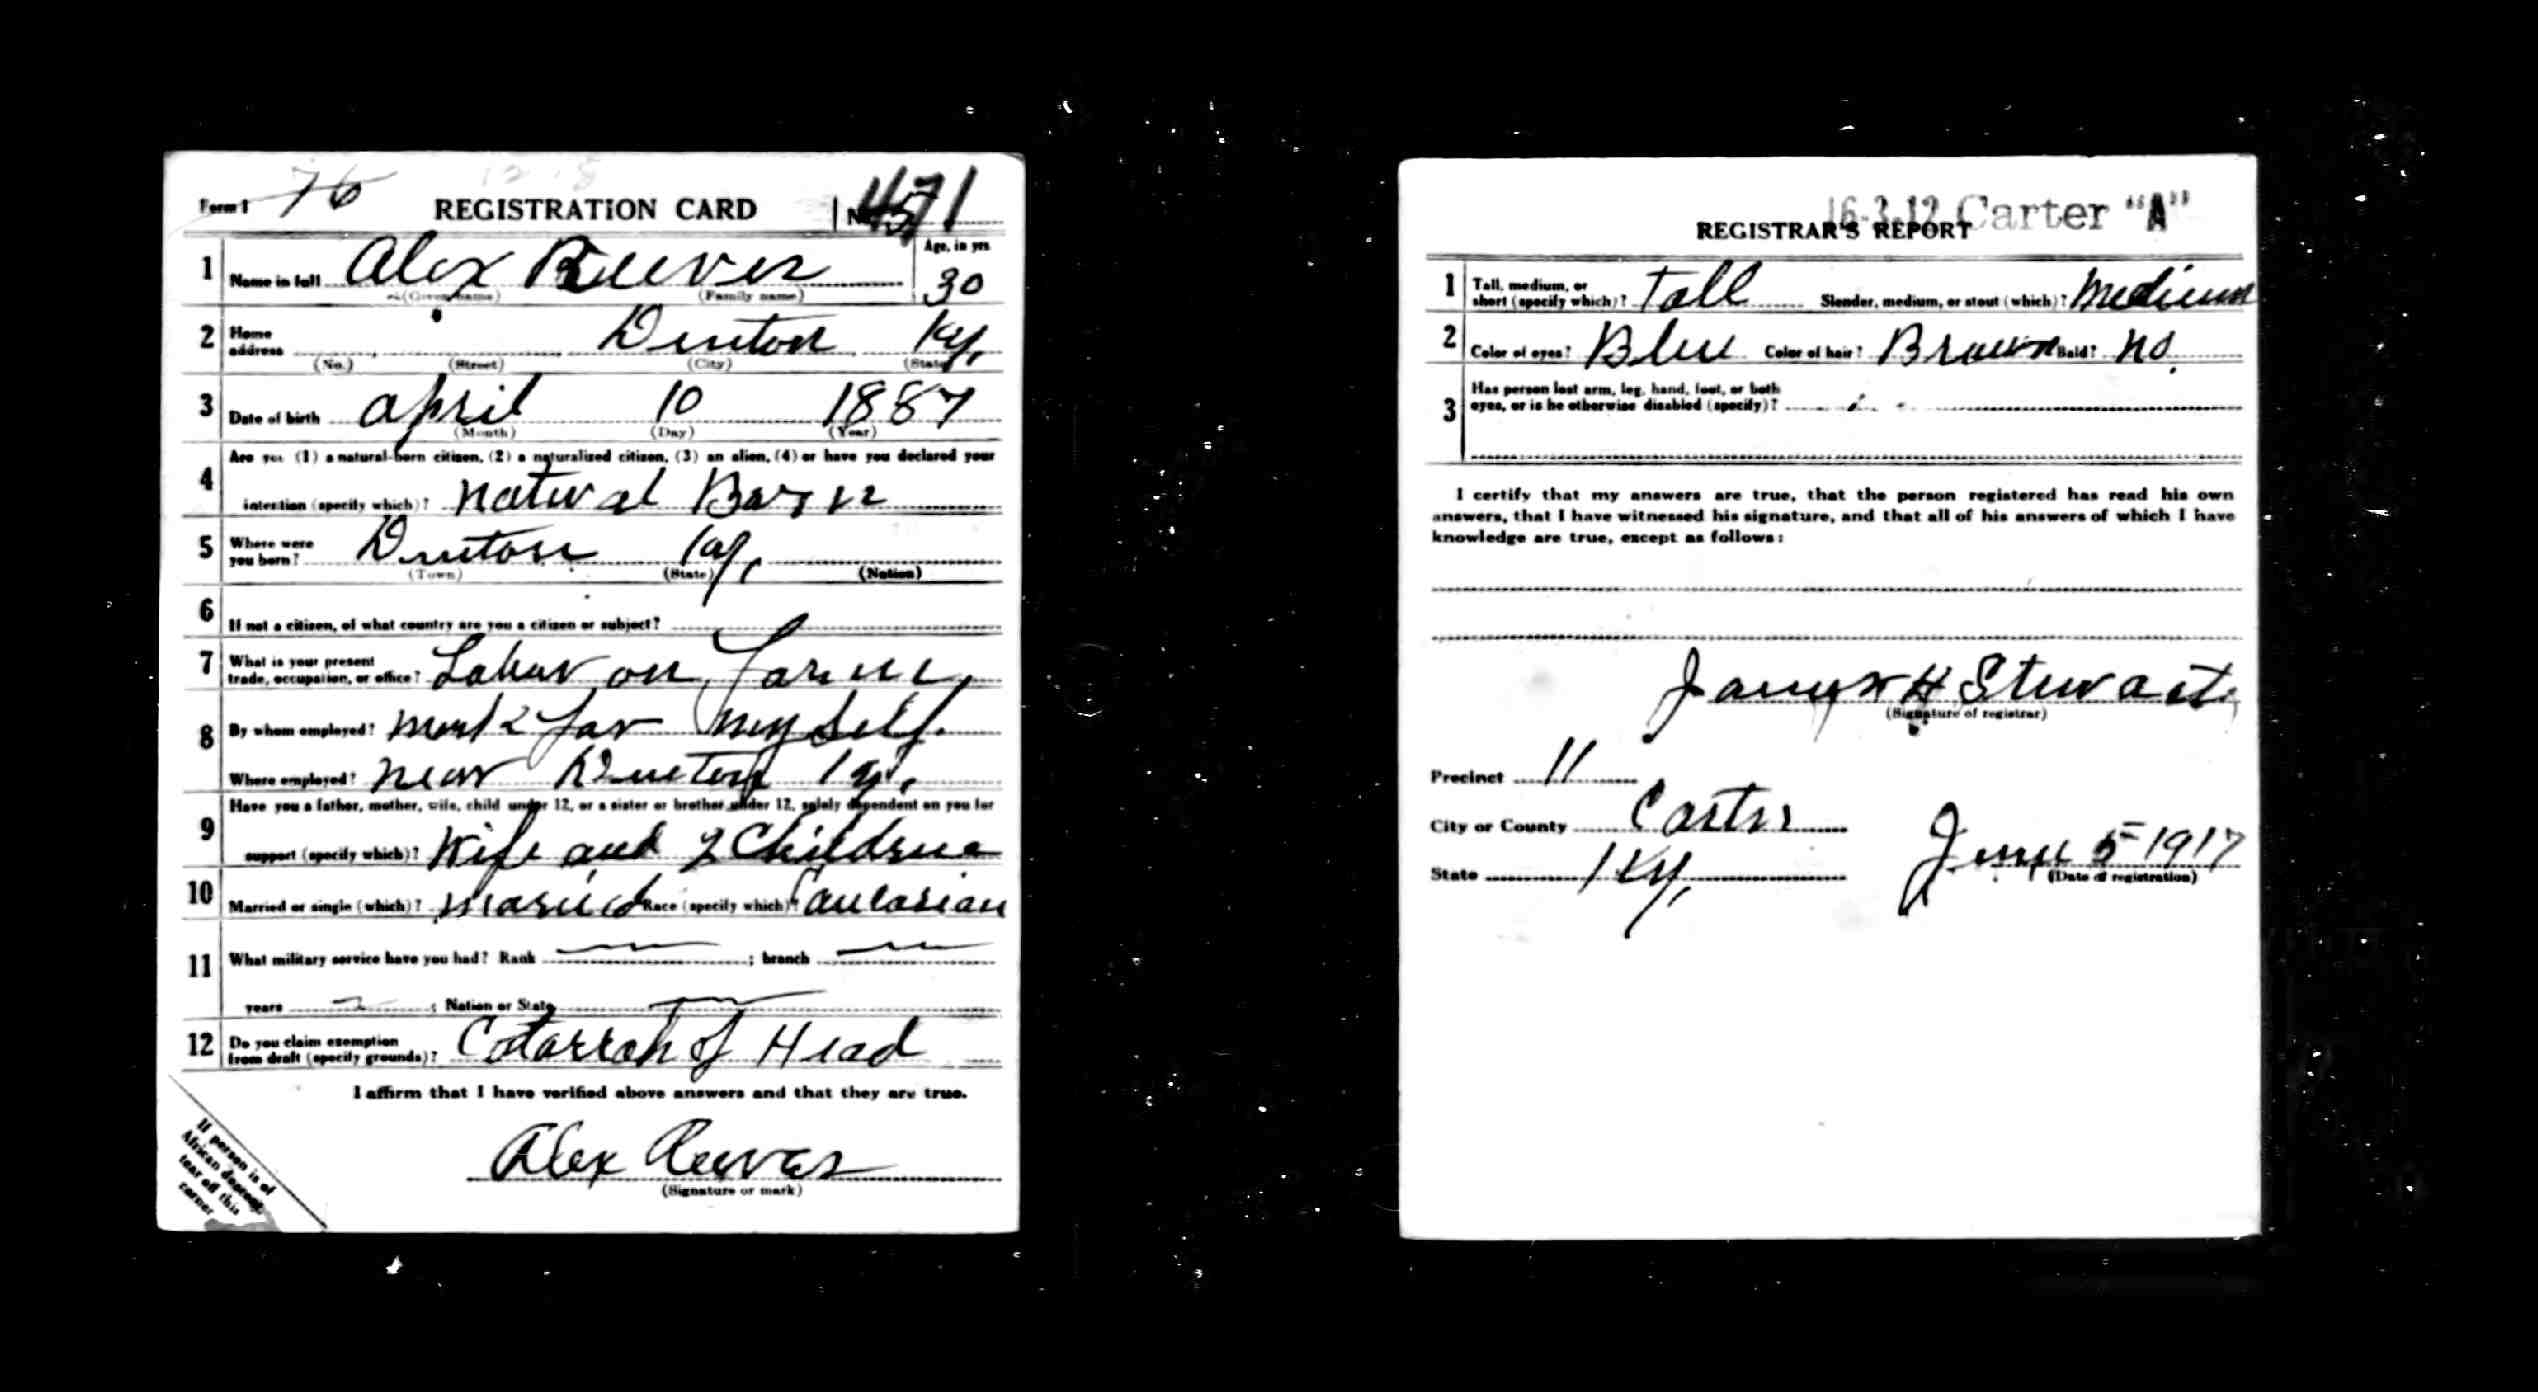 Form 1 76 REGISTRATION CARD No. 471
1 Name in full Alex Reeves Age, in yrs 30
(Given name) (Family name)
2 Home address Denton Ky,
(No.) (Street) (City) (State)
3 Date of birth April 10 1887
(Month) (Day) (Year)
4 Are you (1) a natural-born citizen, (2) a naturalized citizen, (3) an alien, (4) or have you declared your
intention (specify which)? Natural Born
5 Where were you born? Denton Ky,
(Town) (State) (Nation)
6 If not a citizen, of what country are you a citizen or subject?
7 What is your present trade, occupation, or office? Labor on Farm,
8 By whom employed? Work for myself.
Where employed? Near Denton Ky,
9 Have you a father, mother, wife, child under 12, or a sister or brother under 12, solely dependent on you for
support (specify which)? Wife and 2 Children
10 Married or single (which)? Married Race (specify which)? Caucasian
11 What military service have you had? Rank ; branch
years ; Nation or State
12 Do you claim exemption from draft (specify grounds)? Catarrah of Head
I affirm that I have verified above answers and that they are true.
Alex Reeves
(Signature or mark)
If person is of
African descent,
tear off this
corner
16-3-12 Carter "A"
REGISTRAR'S REPORT
1 Tall, medium, or short (specify which)? Tall Slender, medium, or stout (which)? Medium
2 Color of eyes? Blue Color of hair? Brown Bald? No.
3 Has person lost arm, leg, hand, foot, or both
eyes, or is he otherwise disabled (specify)?
I certify that my answers are true, that the person registered has read his own
answers, that I have witnessed his signature, and that all of his answers of which I have
knowledge are true, except as follows:
James H Stewart
(Signature of registrar)
Precinct 11
City or County Carter
State Ky,
June 5 1917
(Date of registration)